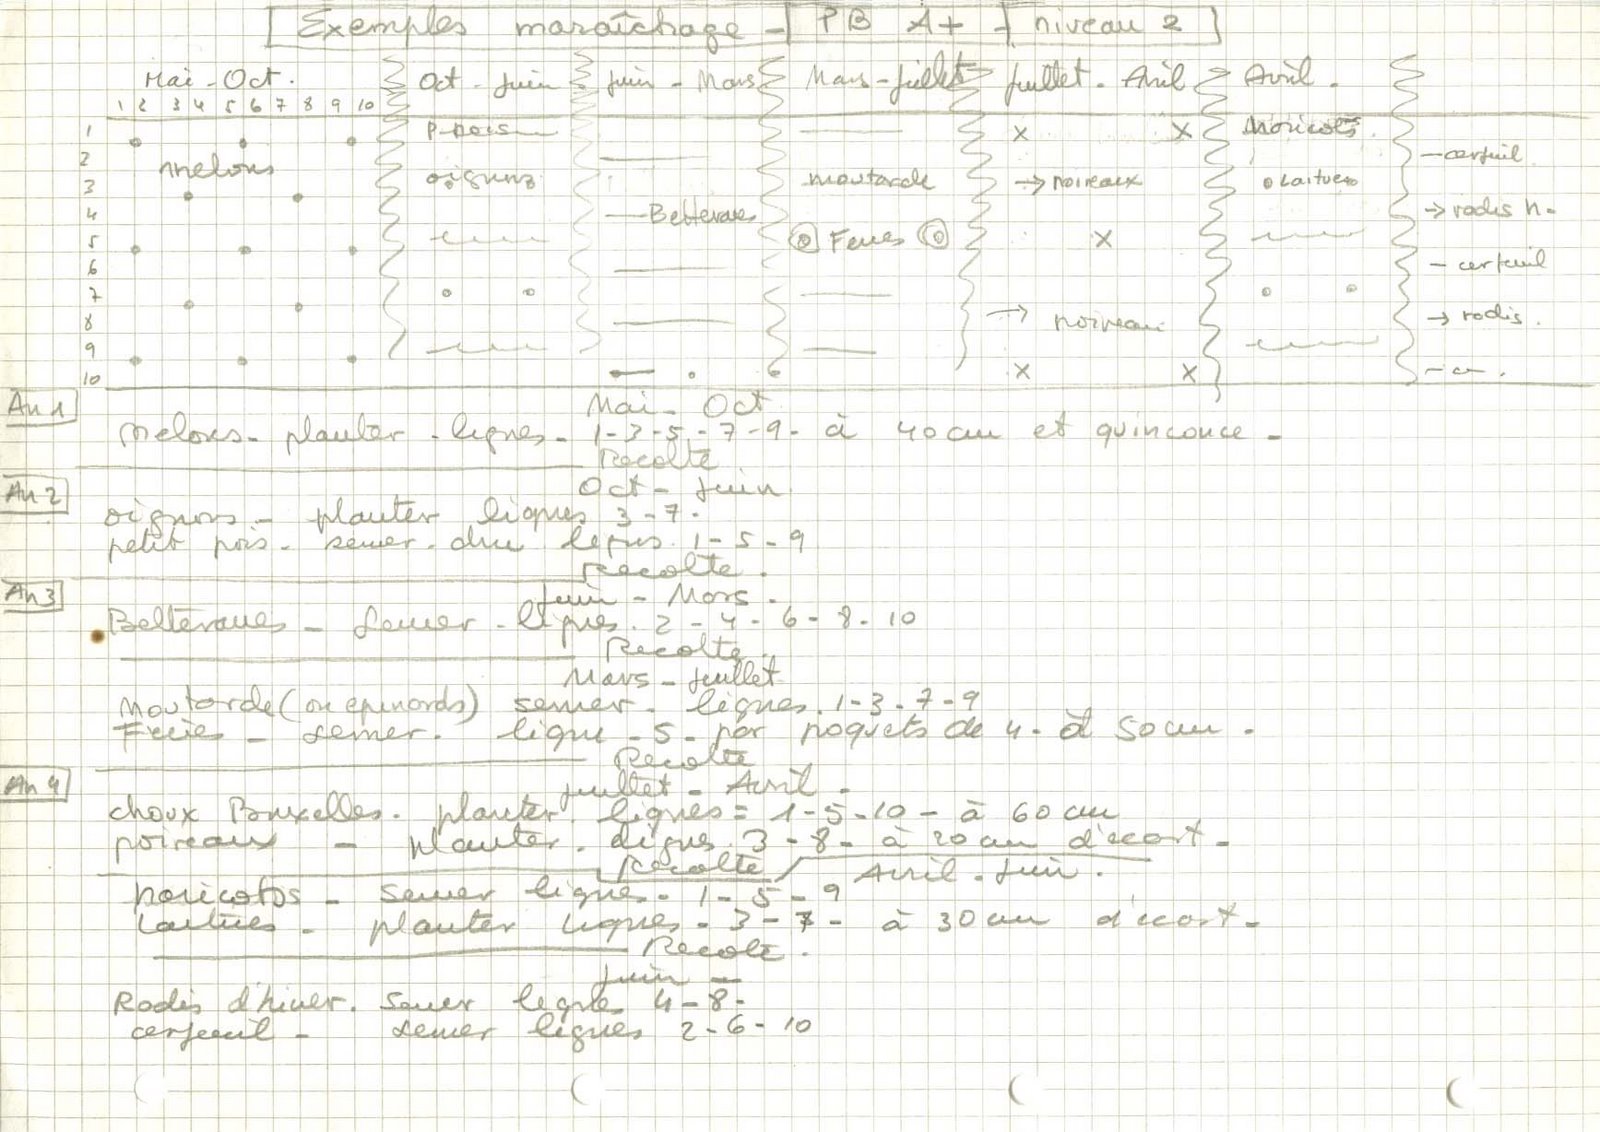 Exemples maraîchage - PB A+ - niveau 2
Mai - Oct. Oct - Juin Juin - Mars Mars - Juillet Juillet - Avril Avril -
1 2 3 4 5 6 7 8 9 10
1 P-pois x x Haricots
2 melons - cerfuil
3 oignons moutarde → poireaux Laitues
4 Betteraves → radis h.
5 Feves x
6 - cerfuil
7
8 → poireau → radis.
9
10 x x - c - .
An 1 Mai - Oct
Melons - planter - lignes - 1 - 3 - 5 - 7 - 9 - à 40 cm et quinconce -
Recolte
An 2 Oct - Juin
oignons - planter lignes 3 - 7 -
petit pois - semer - dru lignes. 1 - 5 - 9
Recolte.
An 3 Juin - Mars -
Betteraves - semer - lignes. 2 - 4 - 6 - 8 - 10
Recolte.
Mars - Juillet
Moutarde (ou epinards) semer - lignes. 1 - 3 - 7 - 9
Feves - semer. ligne - 5 - par poquets de 4 - à 50 cm -
Recolte
An 4 Juillet - Avril -
choux Bruxelles. planter. lignes = 1 - 5 - 10 - à 60 cm
poireaux - planter. lignes. 3 - 8 - à 20 cm d'ecart -
Recolte / Avril - Juin.
haricots - semer ligne - 1 - 5 - 9
Laitues - planter lignes - 3 - 7 - à 30 cm d'ecart -
Recolte.
Juin -
Radis d'hiver. semer ligne 4 - 8 -
cerfeuil - semer lignes 2 - 6 - 10